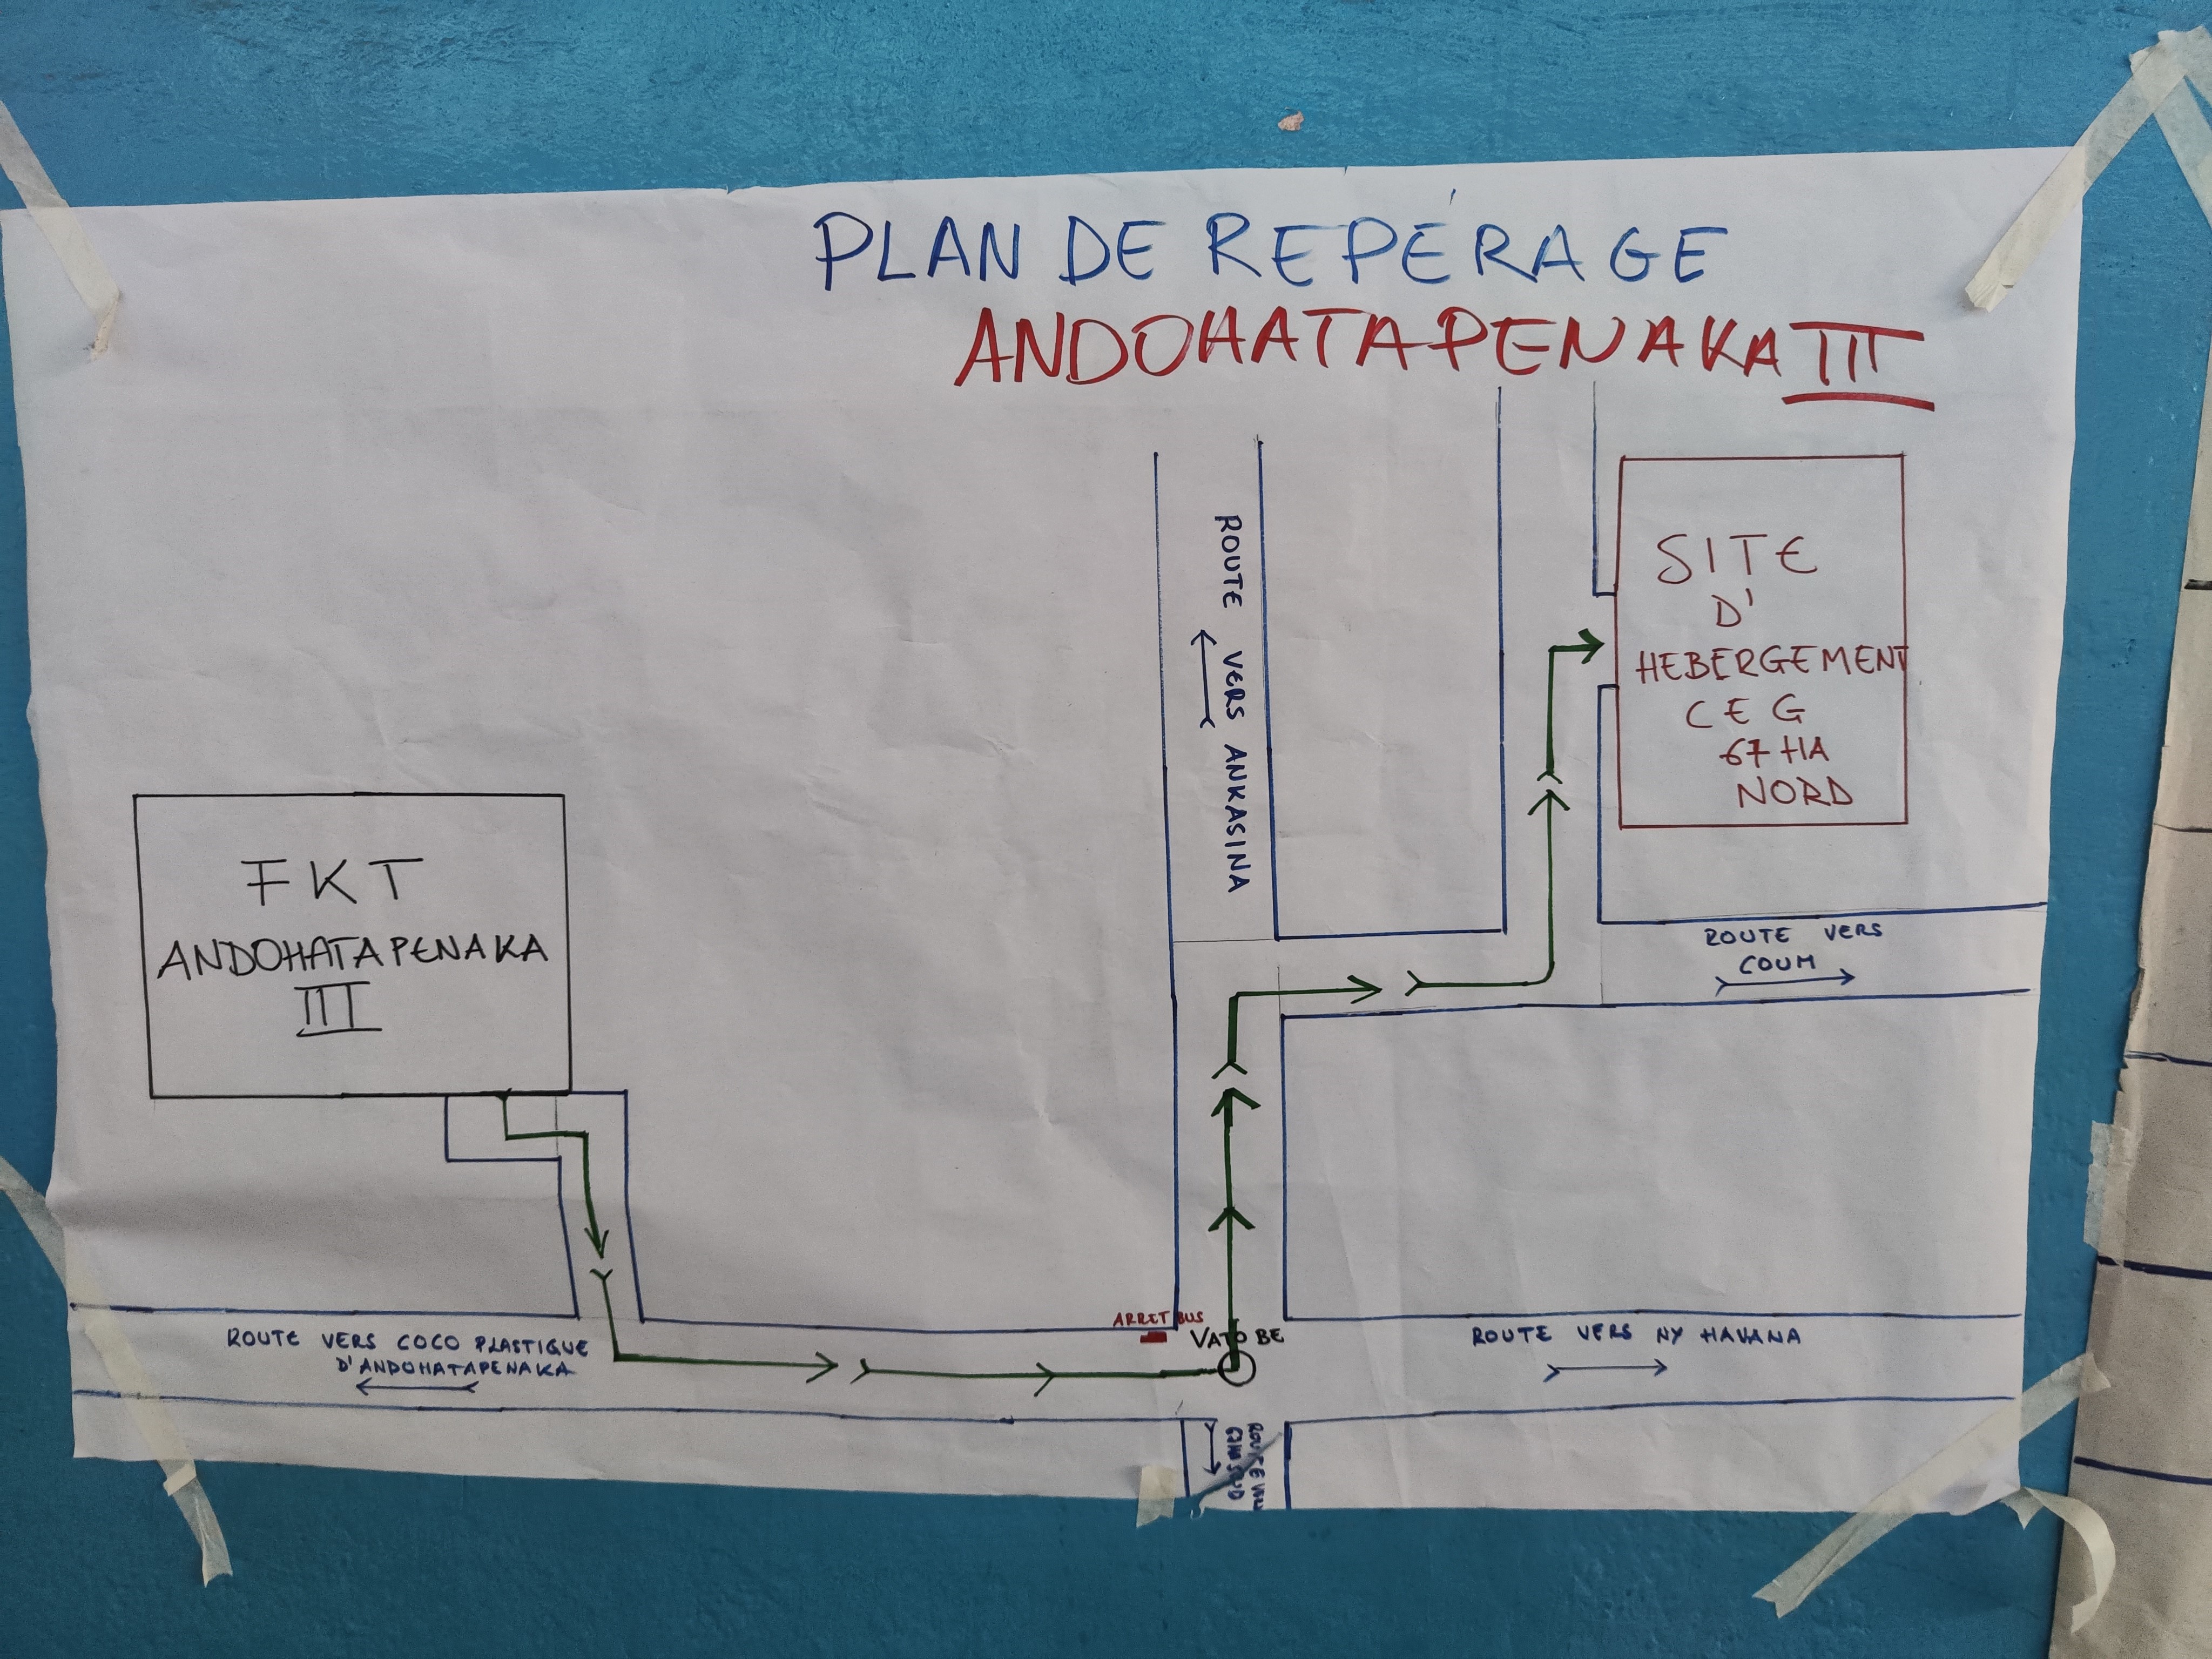 PLAN DE REPÉRAGE
ANDOHATAPENAKA III
ROUTE VERS ANKASINA
SITE
D'
HEBERGEMENT
CEG
67 HA
NORD
FKT
ANDOHATAPENAKA
III
ROUTE VERS
COUM
ARRET BUS
VATO BE
ROUTE VERS COCO PLASTIQUE
D'ANDOHATAPENAKA
ROUTE VERS NY HAVANA
ROUTE VERS
67HA SUD